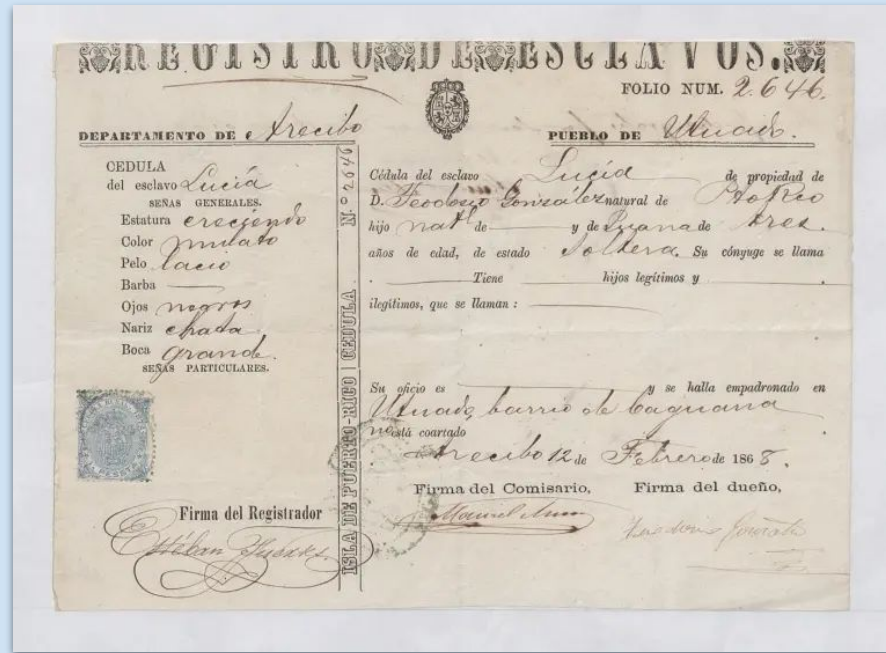 REGISTRO DE ESCLAVOS.
FOLIO NUM. 2.646.
DEPARTAMENTO DE Arecibo
PUEBLO DE Utuado.
CEDULA
del esclavo Lucía
SEÑAS GENERALES.
Estatura creciendo
Color mulato
Pelo lacio
Barba
Ojos negros
Nariz chata
Boca grande.
SEÑAS PARTICULARES.
Firma del Registrador
Estéban
ISLA DE PUERTO-RICO | CEDULA N.º 2646
Cédula del esclavo Lucía de propiedad de
D. Teodosio González natural de Pto Rco
hijo natl de y de Juana de tres
años de edad, de estado Soltera. Su cónyuge se llama
Tiene hijos legítimos y
ilegítimos, que se llaman :
Su oficio es y se halla empadronado en
Utuado, barrio de Caguana
no está coartado
Arecibo 12 de Febrero de 1868.
Firma del Comisario, Firma del dueño,
Manuel
González